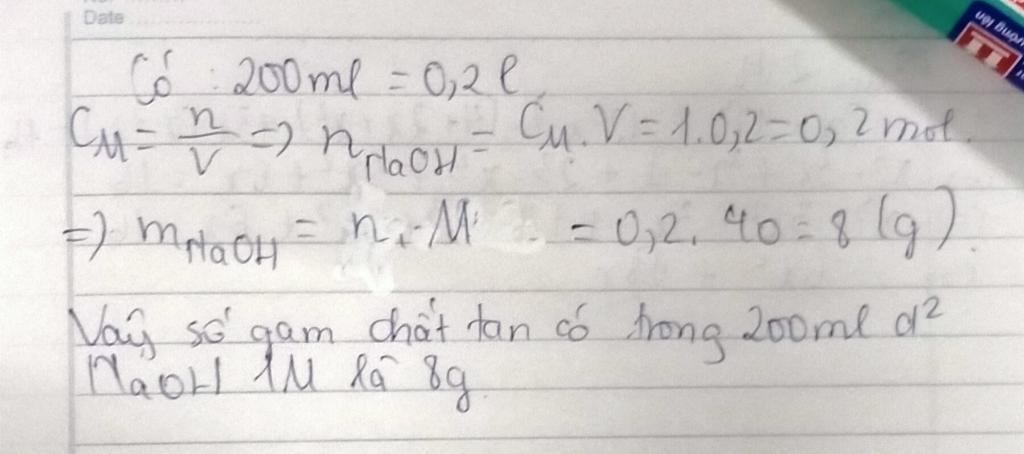 Date
Có : 200ml = 0,2 l
C_M = n/V => n_NaOH = C_M . V = 1.0,2 = 0,2 mol.
=> m_NaOH = n . M = 0,2. 40 = 8 (g).
Vậy số gam chất tan có trong 200ml d²
NaOH 1M là 8g.